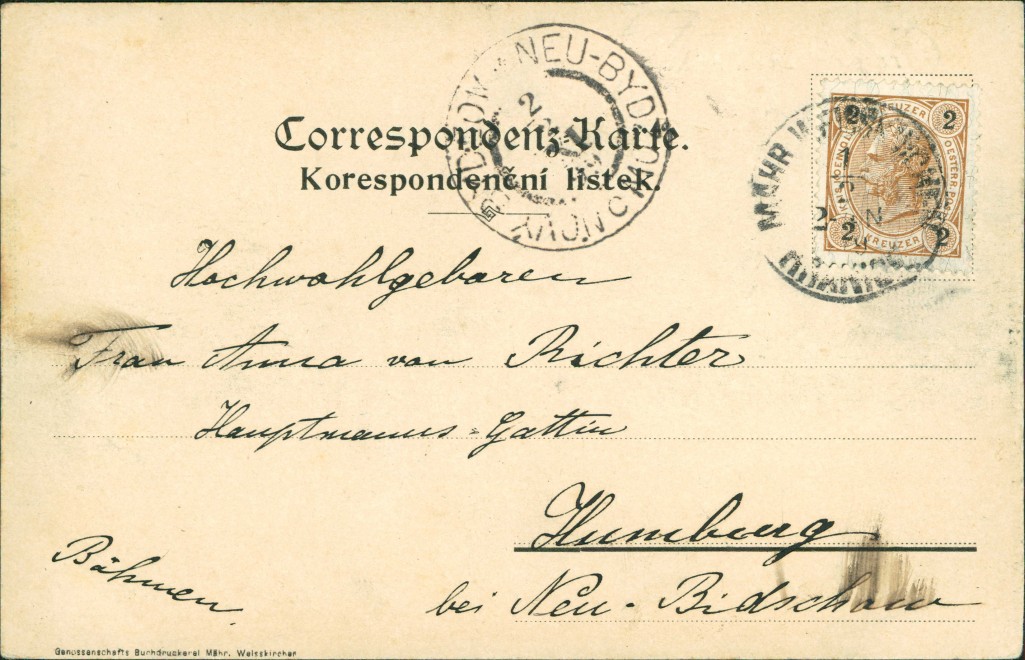 NEU-BYDZOW
NOVÝ
2
Correspondenz-Karte.
Korespondenční lístek.
MÄHR. W
2 KREUZER 2
2 KREUZER 2
Hochwohlgeboren
Frau Anna von Richter
Hauptmanns-Gattin
Humburg
Böhmen
bei Neu-Bidschow
Genossenschafts Buchdruckerei Mähr. Weisskirchen